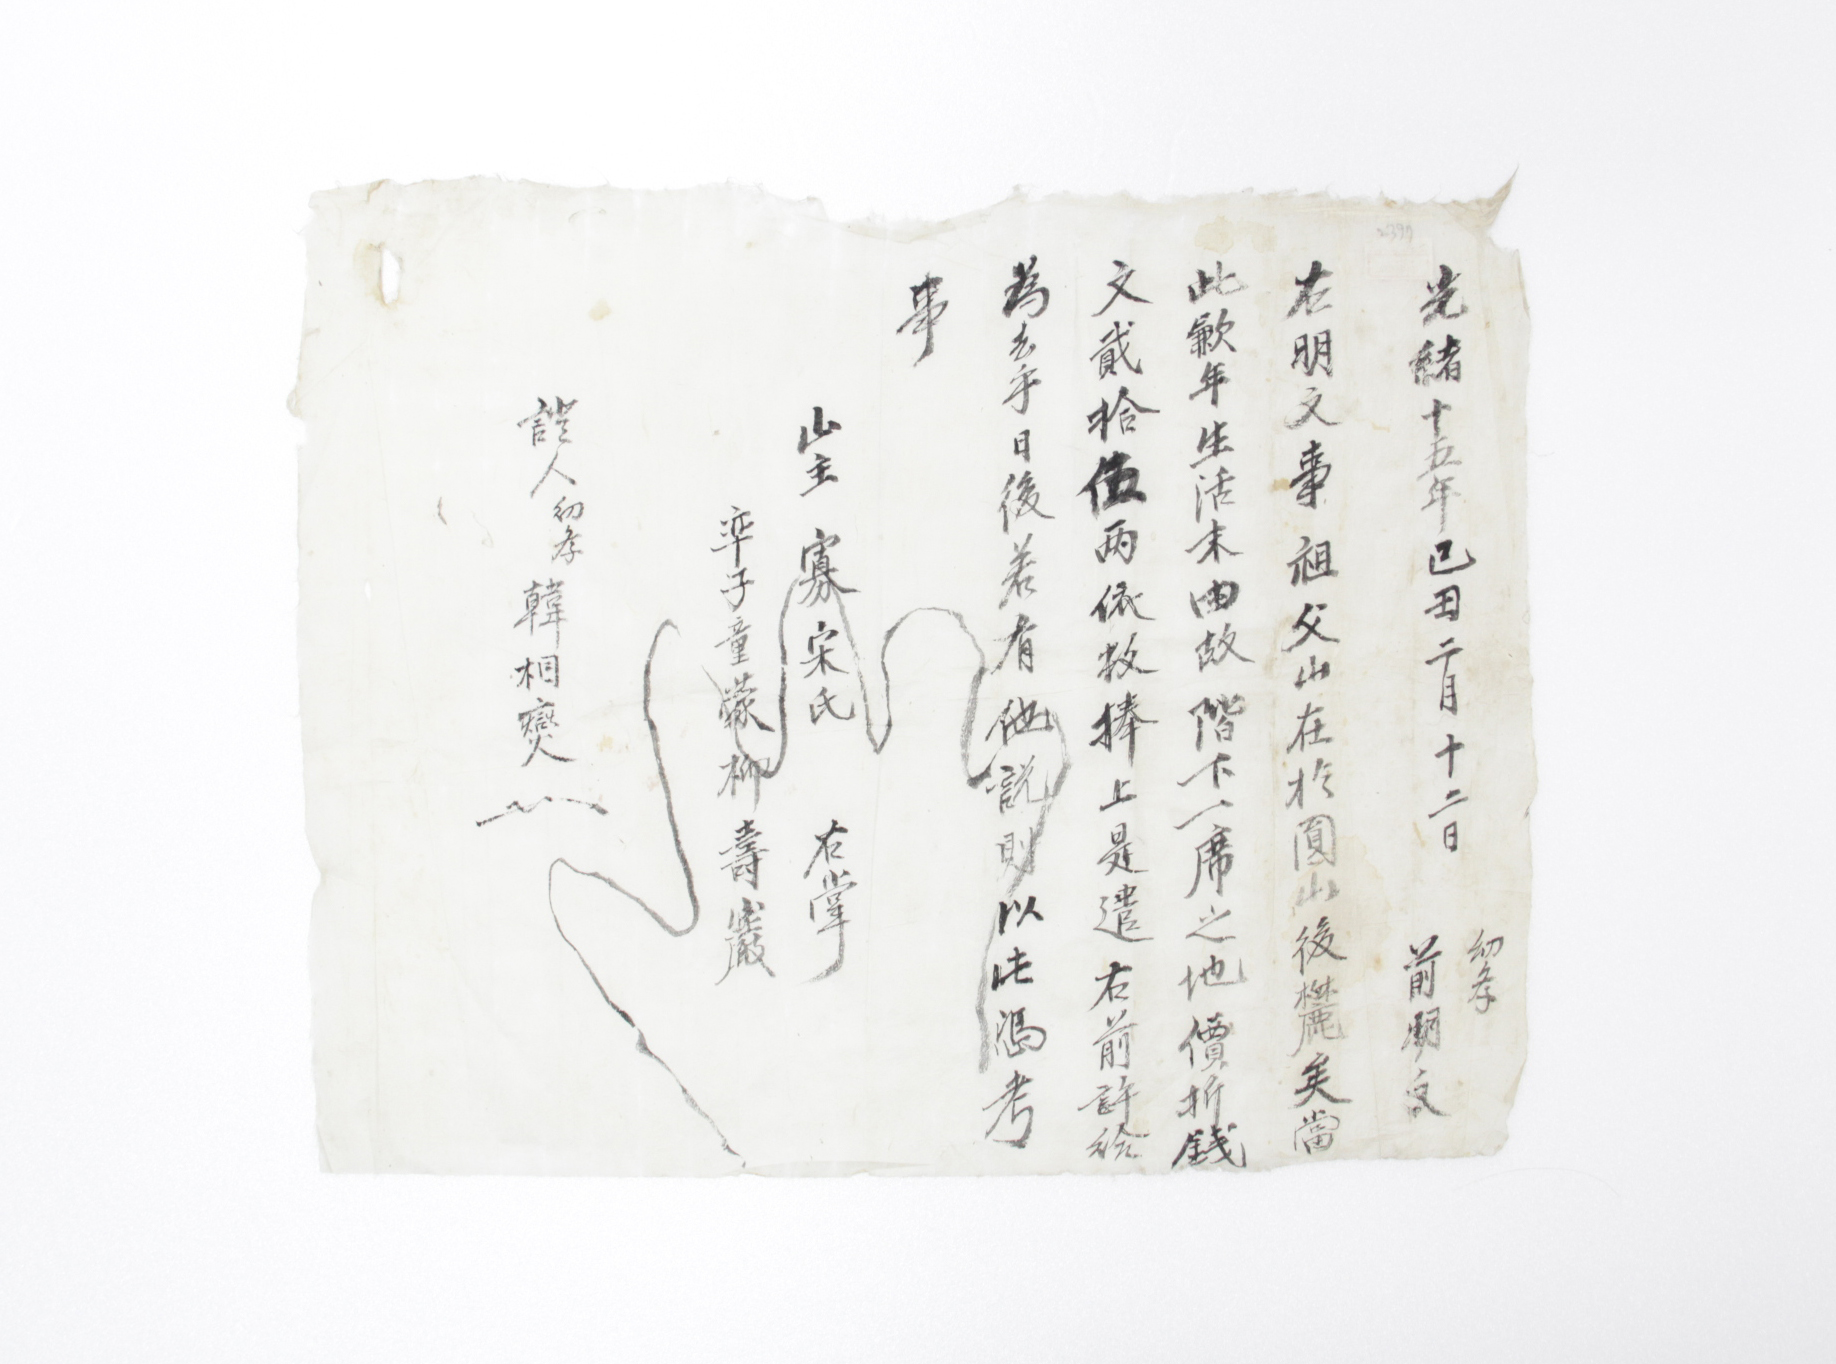 光緖十五年己丑二月十二日 幼孝 前明文
右明文事 祖父山在於圓山後麓矣當
此歉年生活末由故 階下一席之地價折錢
文貳拾伍兩依數捧上是遣 右前許給
爲去乎日後若有他說則以此憑考
事
山主 寡宋氏 右掌
率子童蒙柳壽巖
證人 幼孝 韓相燮